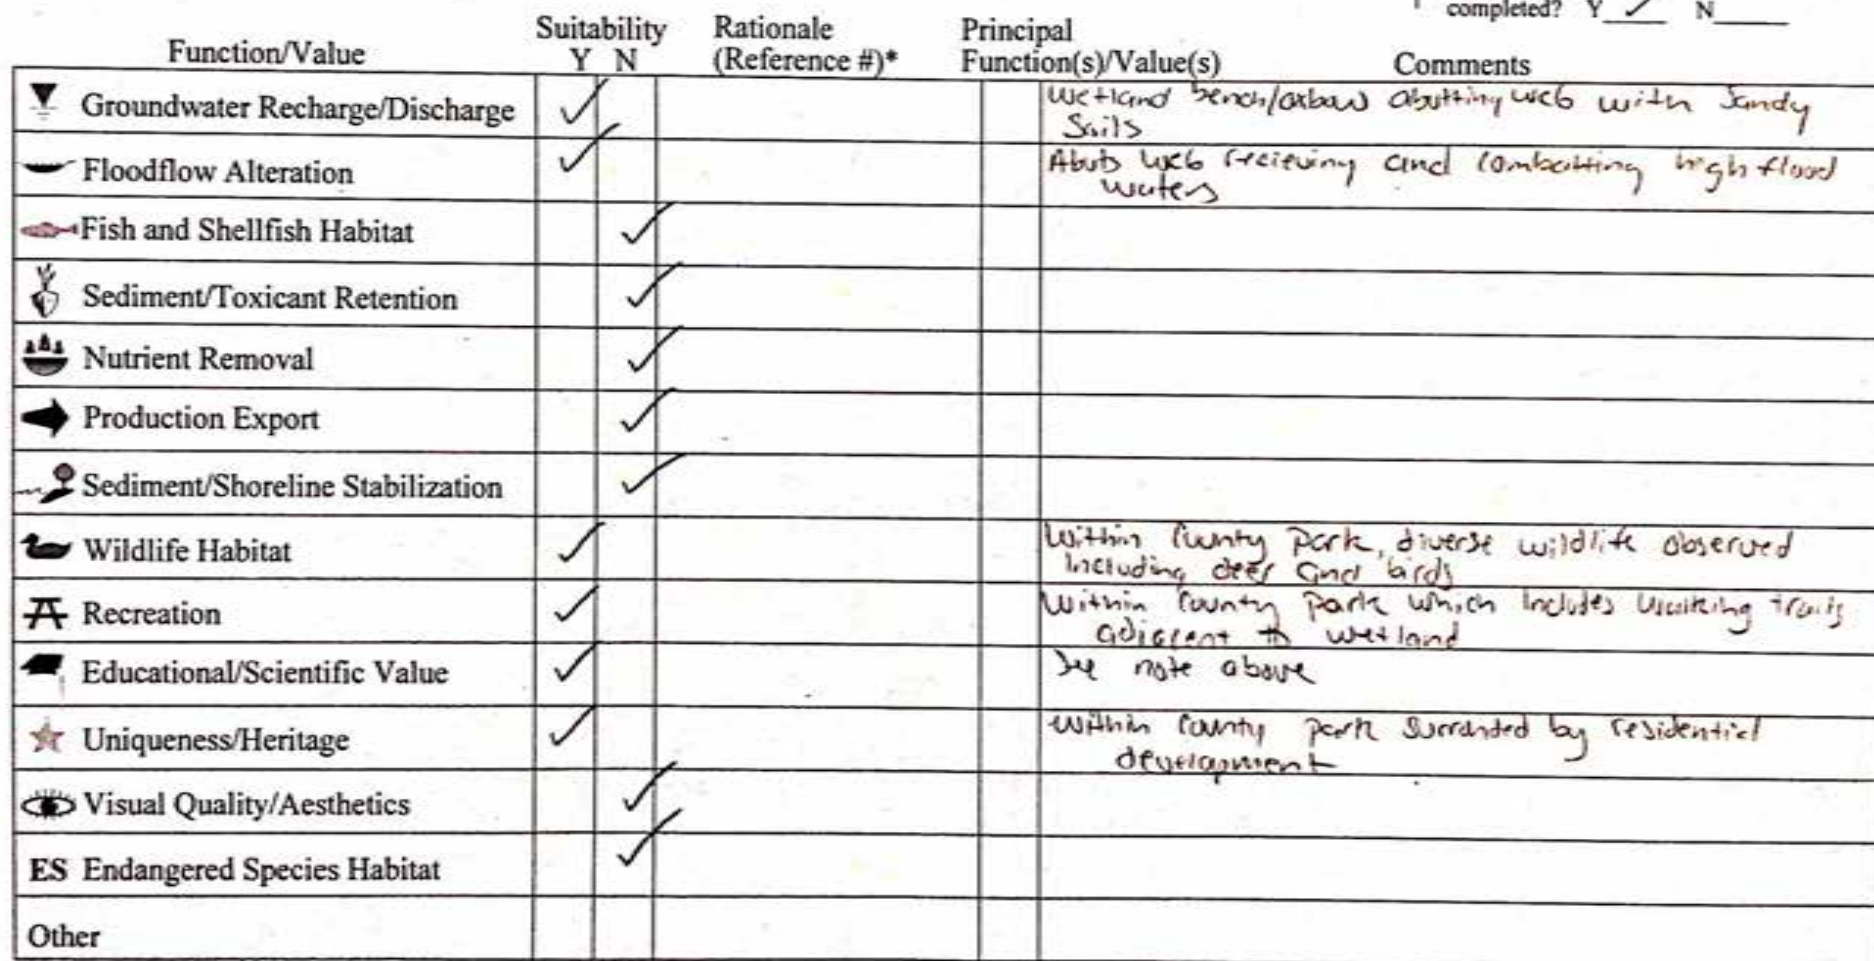 completed? Y ✓ N
Suitability Rationale Principal
Function/Value Y N (Reference #)* Function(s)/Value(s) Comments
Groundwater Recharge/Discharge ✓ Wetland bench/oxbow abutting with Sandy
Soils
Floodflow Alteration ✓ Abuts recieving and combatting high flood
waters
Fish and Shellfish Habitat ✓
Sediment/Toxicant Retention ✓
Nutrient Removal ✓
Production Export ✓
Sediment/Shoreline Stabilization ✓
Wildlife Habitat ✓ Within County Park, diverse wildlife observed
Including deer and birds
Recreation ✓ Within County Park which includes walking trails
adjacent to wetland
Educational/Scientific Value ✓ See note above
Uniqueness/Heritage ✓ within County park surranded by residential
development
Visual Quality/Aesthetics ✓
ES Endangered Species Habitat ✓
Other